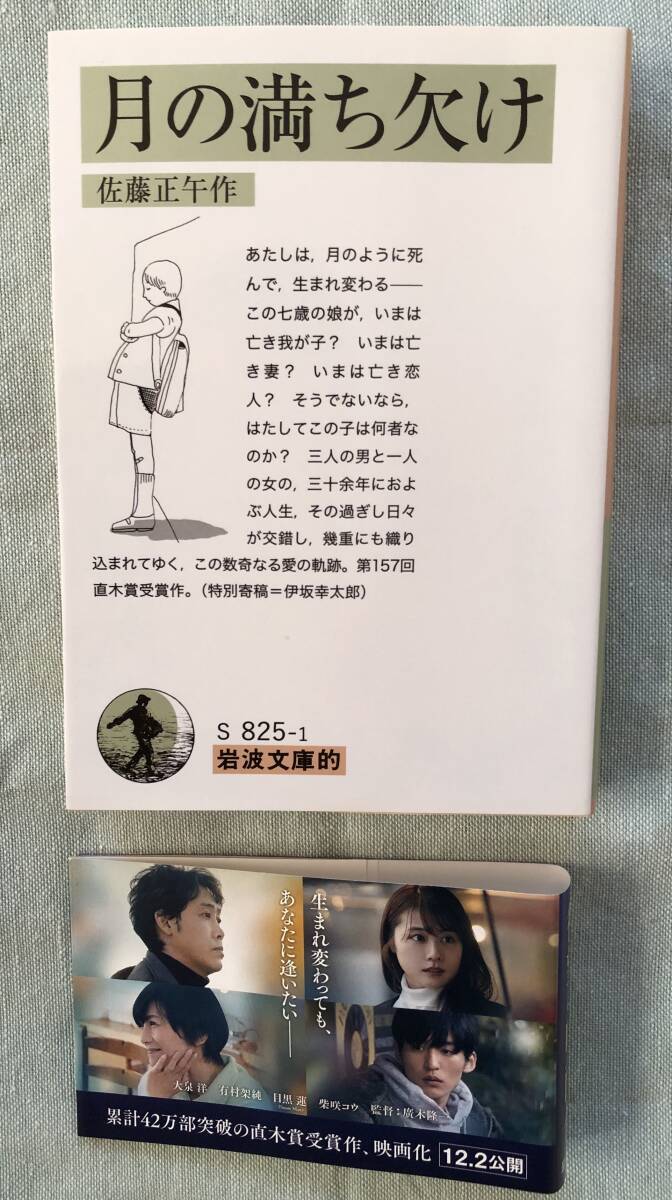 月の満ち欠け
佐藤正午作
あたしは，月のように死
んで，生まれ変わる——
この七歳の娘が，いまは
亡き我が子？　いまは亡
き妻？　いまは亡き恋
人？　そうでないなら，
はたしてこの子は何者な
のか？　三人の男と一人
の女の，三十余年におよ
ぶ人生，その過ぎし日々
が交錯し，幾重にも織り
込まれてゆく，この数奇なる愛の軌跡。第157回
直木賞受賞作。（特別寄稿＝伊坂幸太郎）
S 825-1
岩波文庫的
生まれ変わっても、
あなたに逢いたい——
大泉 洋　有村架純　目黒 蓮　柴咲コウ　監督：廣木隆一
累計42万部突破の直木賞受賞作、映画化 12.2公開